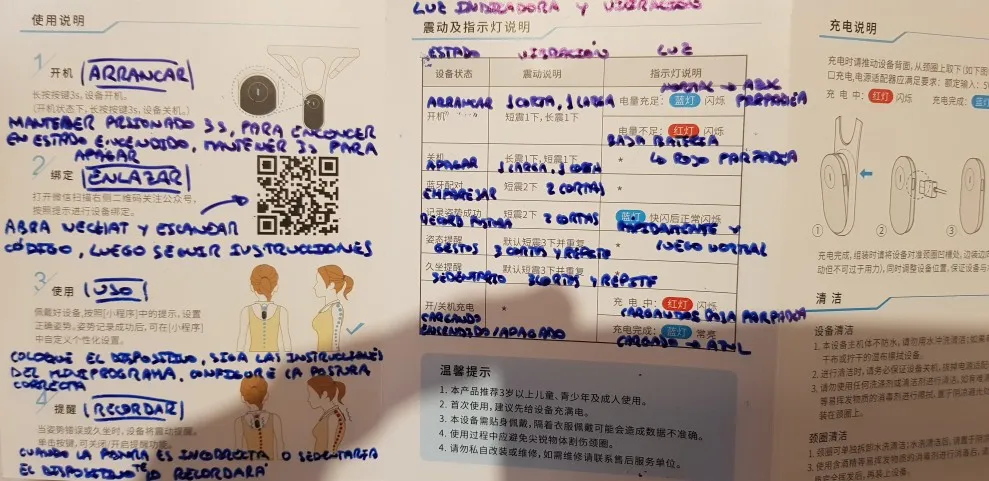 使用说明
1 开机 ARRANCAR
长按按键3s,设备开机。
(开机状态下,长按按键3s,设备关机。)
MANTENER PRISIONADO 3s, PARA ENCENCER
EN ESTADO ENCENDIDO, MANTENER 3s PARA
APAGAR
2 绑定 ENLAZAR
打开微信扫描右侧二维码关注公众号,
按照提示进行设备绑定。
ABRA WECHAT Y ESCANEAR
CÓDIGO, LUEGO SEGUIR INSTRUCCIONES
3 使用 USO
佩戴好设备,按照[小程序]中的提示,设置
正确姿势。姿势记录成功后,可在[小程序]
中自定义个性化设置。
COLOQUE EL DISPOSITIVO, SIGA LAS INSTRUCCIONES
DEL MINIPROGRAMA, CONFIGURE LA POSTURA
CORRECTA
4 提醒 RECORDAR
当姿势错误或久坐时,设备将震动提醒。
单击按键,可关闭/开启提醒功能。
CUANDO LA POSTURA ES INCORRECTA O SEDENTAREA
EL DISPOSITIVO TE LO RECORDARÁ
LUZ INDICADORA Y VIBRACIÓN
震动及指示灯说明
ESTADO VIBRACIÓN LUZ
设备状态 震动说明 指示灯说明
NORMAL → AZUL
ARRANCAR 1 CORTA, 1 LARGA 电量充足: 蓝灯 闪烁 PARPADEA
开机 短震1下,长震1下
电量不足: 红灯 闪烁
BAJA BATERIA
LO ROJO PARPADEA
关机 长震1下,短震1下 *
APAGAR 1 LARGA, 1 CORTA
蓝牙配对 短震2下 2 CORTAS *
EMPAREJAR
记录姿势成功 短震2下 2 CORTAS 蓝灯 快闪后正常闪烁
RECORD POSTURA RAPIDAMENTE Y
LUEGO NORMAL
姿态提醒 默认短震3下并重复 *
GESTOS 3 CORTAS Y REPETIR
久坐提醒 默认短震3下并重复
SEDENTARIO 3 CORTAS Y REPETIR
开/关机充电 * 充电中: 红灯 闪烁
CARGANDO CARGANDO → ROJA PARPADEA
ENCENDIDO/APAGADO 充电完成: 蓝灯 常亮
CARGADO → AZUL
温馨提示
1. 本产品推荐3岁以上儿童、青少年及成人使用。
2. 首次使用,建议先给设备充满电。
3. 本设备需贴身佩戴,隔着衣服佩戴可能会造成数据不准确。
4. 使用过程中应避免尖锐物体割伤颈圈。
4. 请勿私自改装或维修,如需维修请联系售后服务单位。
充电说明
充电时请推动设备背面,从颈圈上取下(如下图
口充电,电源适配器应满足要求:额定输入:5V
充电中: 红灯 闪烁 充电完成: 蓝
① ② ③
充电完成,组装时请将设备对准颈圈凹槽处,边装边
动但不可过于用力),同时调整设备位置,保证设备与
清洁
设备清洁
1. 本设备主机体不防水,请勿用水冲洗清洁;如需
干布或拧干的湿布擦拭设备。
2. 进行清洁时,请务必保证设备关机,拔掉电源适配
3. 请勿使用任何洗涤剂或清洁剂进行清洁,如有难清
等易挥发物质的消毒剂进行擦拭,置于阴凉避光处
装在颈圈上。
颈圈清洁
1. 颈圈可单独拆卸水洗清洁;水洗清洁后,请置于阴
2. 使用含酒精等易挥发物质的消毒剂进行消毒后,请
完全挥发后,再装上设备。